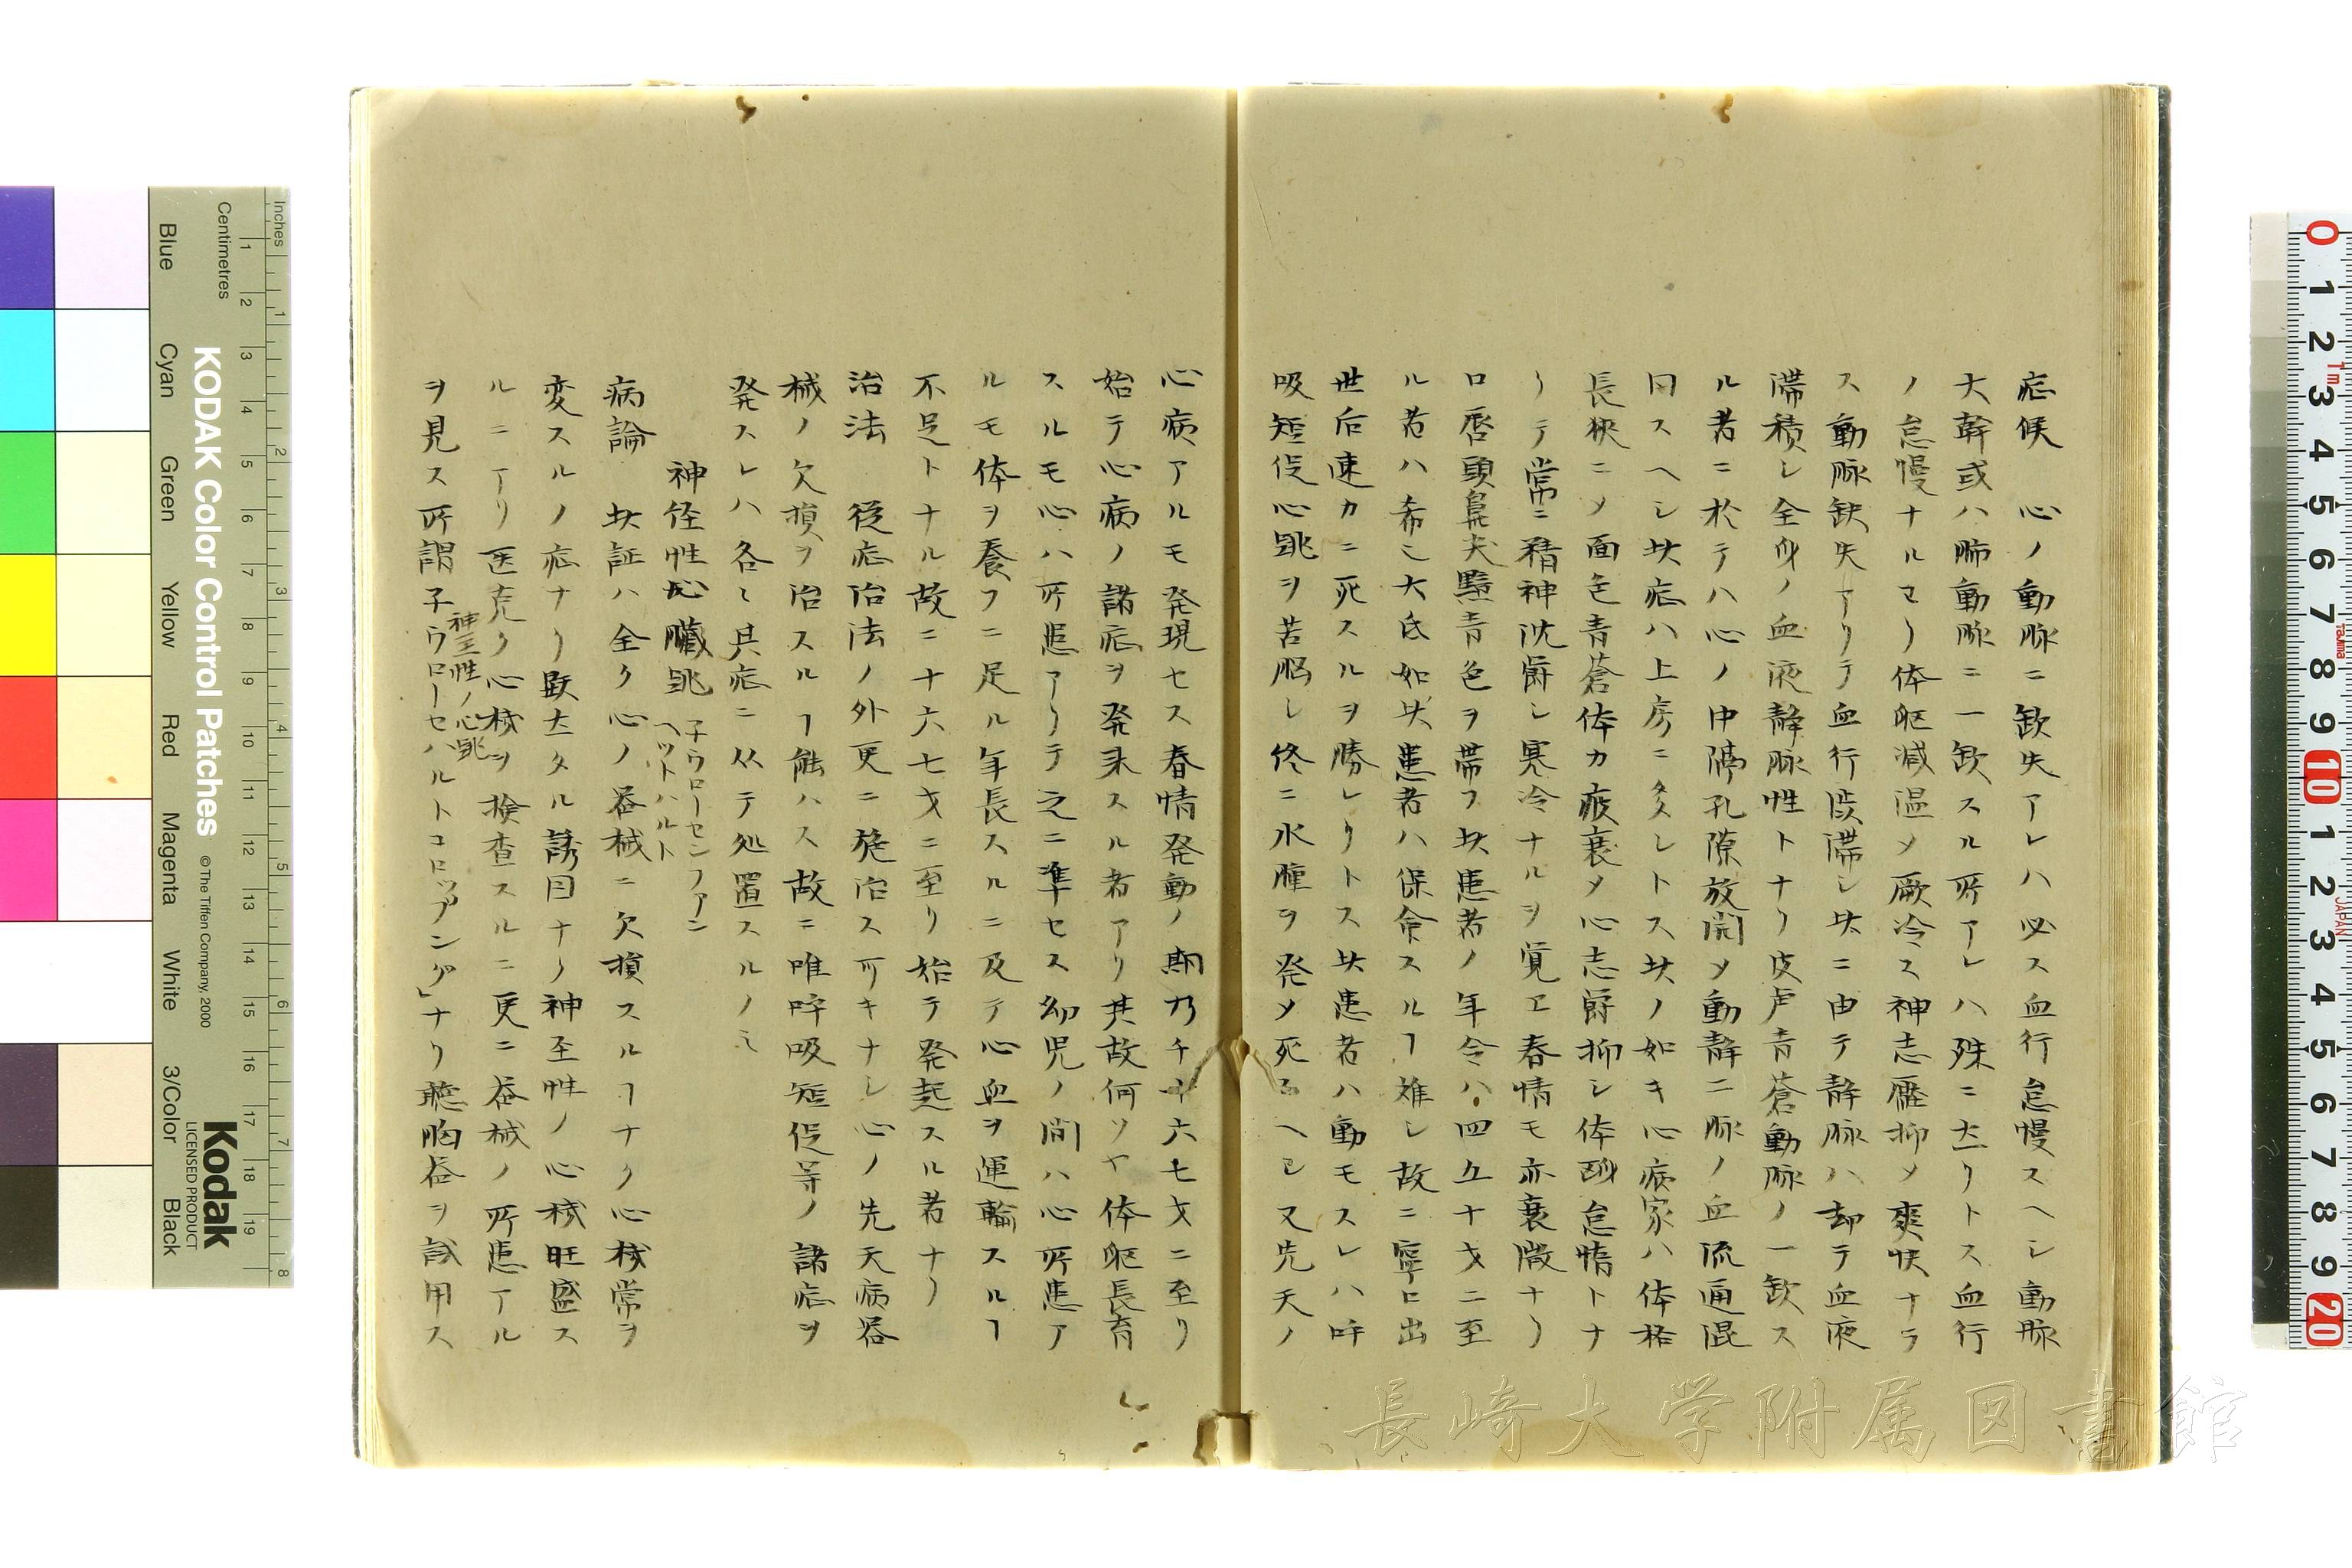 症候　心ノ動脈ニ欽失アレハ必ス血行怠慢スヘシ動脈
大幹或ハ肺動脈ニ一欽スル所アレハ殊ニ大リトス血行
ノ怠慢ナルヿ体躯減温〆厥冷ス神志壓抑〆爽快ナラ
ス動脈缺失アリテ血行渋滞シ此ニ由テ静脈ハ却テ血液
滞積シ全身ノ血液静脈性トナリ皮膚青蒼動脈ノ一欽ス
ル者ニ於テハ心ノ中隔孔隙放開〆動静二脈ノ血流通混
同スヘシ此症ハ上房ニ多シトス此ノ如キ心病家ハ体格
長狭ニ〆面色青蒼体力疲衰〆心志欝抑シ体動怠惰トナ
リテ常ニ精神沈欝シ寒冷ナルヲ覚ヱ春情モ亦衰微ナリ
口唇頭鼻尖黯青色ヲ帯フ此患者ノ年令ハ四五十才ニ至
ル者ハ希也大氐如此患者ハ保命スルヿ難シ故ニ寧ロ出
世后速カニ死スルヲ勝レリトス此患者ハ動モスレハ呼
吸短促心跳ヲ苦悩シ終ニ水腫ヲ発〆死スヘシ又先天ノ
心病アルモ発現セス春情発動ノ期乃チ十六七才ニ至リ
始テ心病ノ諸症ヲ発来スル者アリ其故何ソヤ体躯長育
スルモ心ハ所患アリテ之ニ準セス幼児ノ間ハ心所患ア
ルモ体ヲ養フニ足ル年長スルニ及テ心血ヲ運輸スルヿ
不足トナル故ニ十六七才ニ至リ始テ発起スル者ナリ
治法　従症治法ノ外更ニ施治ス可キナシ心ノ先天病器
械ノ欠損ヲ治スルヿ能ハス故ニ唯呼吸短促等ノ諸症ヲ
発スレハ各〻其症ニ从テ処置スルノミ
神経性心臓跳　子ウローセンフアン
ヘットハルト
病論　此証ハ全ク心ノ器械ニ欠損スルヿナク心機常ヲ
変スルノ症ナリ最大タル誘因ナリ神至性ノ心機旺盛ス
ルニアリ医克ク心機ヲ検査スルニ更ニ器械ノ所患アル
神至性ノ心跳
ヲ見ス所謂子ウローセハルトコロッフング」ナリ聴胸器ヲ試用ス
KODAK Color Control Patches
© The Tiffen Company, 2000
Kodak
LICENSED PRODUCT
Inches
Centimetres
Blue
Cyan
Green
Yellow
Red
Magenta
White
3/Color
Black
長崎大学附属図書館